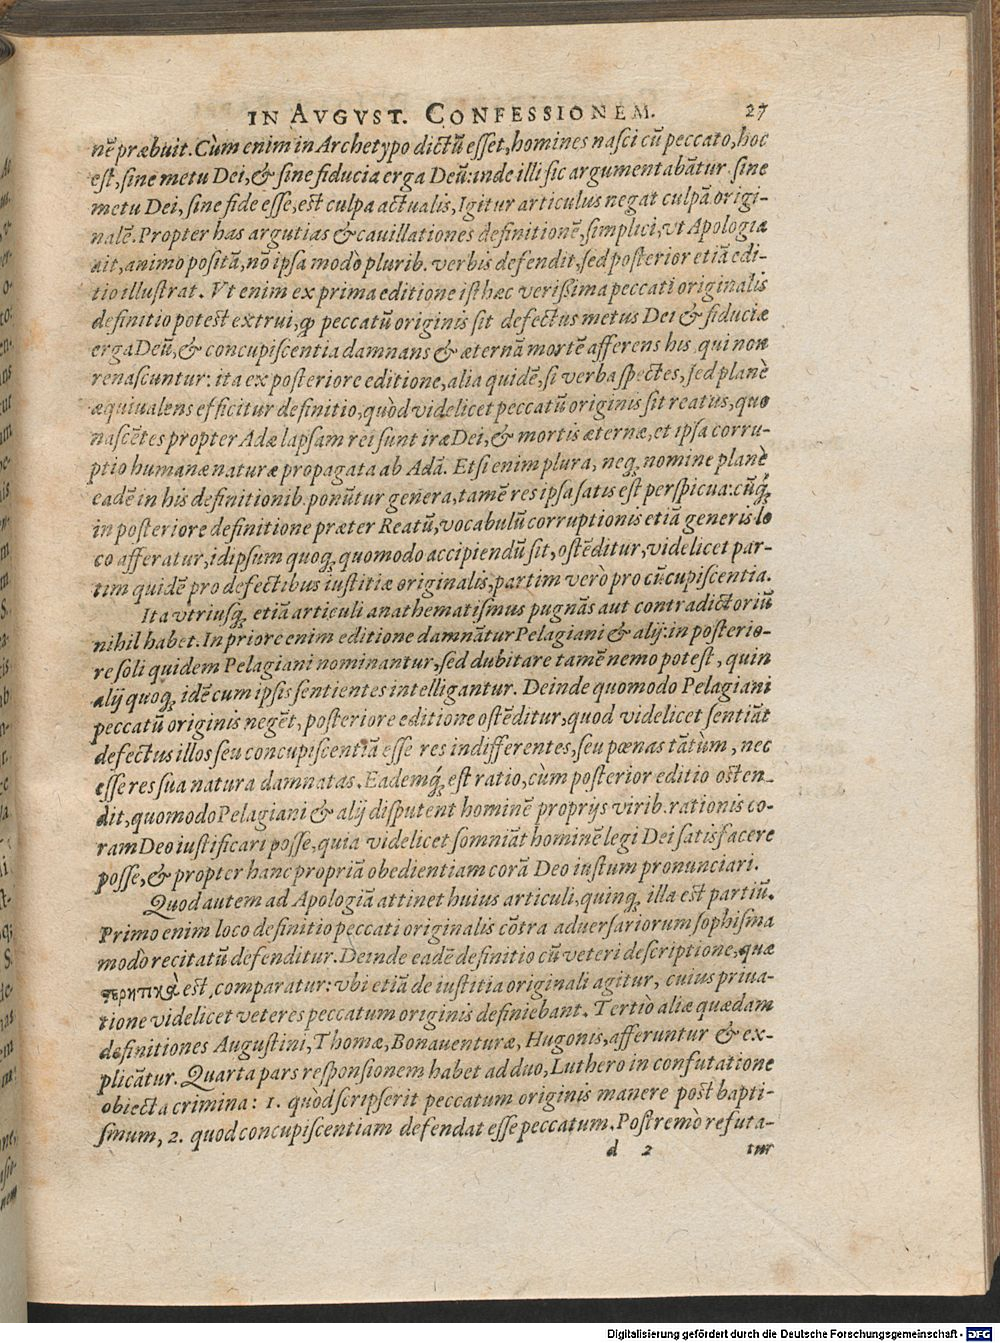 IN AVGVST. CONFESSIONEM. 27
nẽ præbuit. Cùm enim in Archetypo dictũ eſſet, homines naſci cũ peccato, hoc
eſt, ſine metu Dei, & ſine fiducia erga Deũ: inde illi ſic argumentabãtur. ſine
metu Dei, ſine fide eſſe, eſt culpa actualis, Igitur articulus negat culpã origi-
nalẽ. Propter has argutias & cauillationes definitionẽ, ſimplici, vt Apologia
ait, animo poſitã, nõ ipſa modò plurib. verbis defendit, ſed poſterior etiã edi-
tio illuſtrat. Vt enim ex prima editione iſthæc veriſsima peccati originalis
definitio poteſt extrui, ꝙ peccatũ originis ſit defectus metus Dei & fiduciæ
erga Deũ, & concupiſcentia damnans & æternã mortẽ afferens his qui non
renaſcuntur: ita ex poſteriore editione, alia quidẽ, ſi verba ſpectes, ſed planè
æquiualens efficitur definitio, quòd videlicet peccatũ originis ſit reatus, quo
naſcẽtes propter Adæ lapſum rei ſunt iræ Dei, & mortis æternæ, et ipſa corru-
ptio humanæ naturæ propagata ab Adã. Etſi enim plura, neq; nomine planè
eadẽ in his definitionib. ponũtur genera, tamẽ res ipſa ſatis eſt perſpicua: cũq́;
in poſteriore definitione præter Reatũ, vocabulũ corruptionis etiã generis lo
co afferatur, id ipſum quoq; quomodo accipiendũ ſit, oſtẽditur, videlicet par-
tim quidẽ pro defectibus iuſtitiæ originalis, partim verò pro cũcupiſcentia.
Ita vtriuſq; etiã articuli anathematiſmus pugnãs aut contradictoriũ
nihil habet. In priore enim editione damnãtur Pelagiani & alij: in poſterio-
re ſoli quidem Pelagiani nominantur, ſed dubitare tamẽ nemo poteſt, quin
alij quoq; idẽ cum ipſis ſentientes intelligantur. Deinde quomodo Pelagiani
peccatũ originis negẽt, poſteriore editione oſtẽditur, quod videlicet ſentiãt
defectus illos ſeu concupiſcentiã eſſe res indifferentes, ſeu pœnas tãtùm, nec
eſſe res ſua natura damnatas. Eademq́; eſt ratio, cùm poſterior editio oſten-
dit, quomodo Pelagiani & alij diſputent hominẽ proprijs virib. rationis co-
ram Deo iuſtificari poſſe, quia videlicet ſomniãt hominẽ legi Dei ſatisfacere
poſſe, & propter hanc propriã obedientiam corã Deo iuſtum pronunciari.
Quod autem ad Apologiã attinet huius articuli, quinq; illa eſt partiũ.
Primo enim loco definitio peccati originalis cõtra aduerſariorum ſophiſma
modò recitatũ defenditur. Deinde eadẽ definitio cũ veteri deſcriptione, quæ
ϛερητικὴ eſt, comparatur: vbi etiã de iuſtitia originali agitur, cuius priua-
tione videlicet veteres peccatum originis definiebant. Tertiò aliæ quædam
definitiones Auguſtini, Thomæ, Bonauenturæ, Hugonis, afferuntur & ex-
plicãtur. Quarta pars reſponſionem habet ad duo, Luthero in confutatione
obiecta crimina: 1. quod ſcripſerit peccatum originis manere poſt bapti-
ſmum, 2. quod concupiſcentiam defendat eſſe peccatum. Poſtremò refuta-
d 2 tur
Digitalisierung gefördert durch die Deutsche Forschungsgemeinschaft - DFG